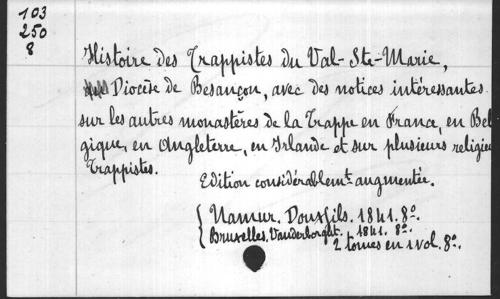 103
250
8
Histoire des Trappistes du Val-Ste-Marie,
Diocèse de Besançon, avec des notices intéressantes
sur les autres monastères de la Trappe en France, en Bel
gique, en Angleterre, en Irlande et sur plusieurs religieu
Trappistes.
Edition considérablemt. augmentée.
Namur. Douxfils. 1841. 8o.
Bruxelles. Vanderborght. 1841. 8o.
2 tomes en 1 vol. 8o.